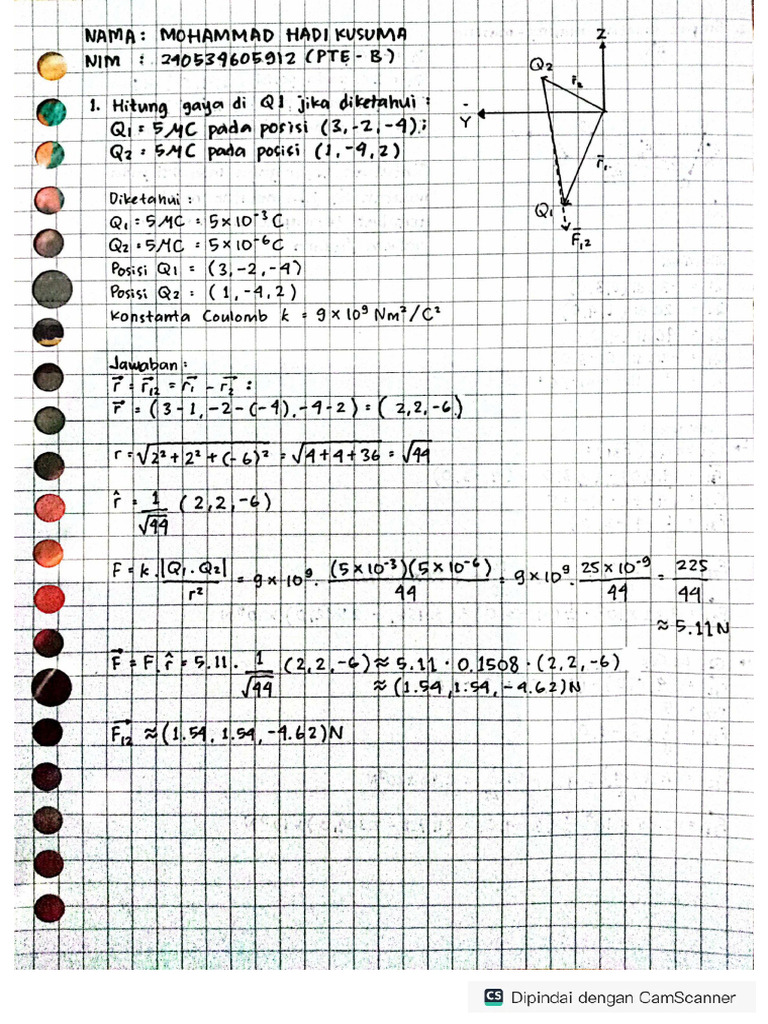 NAMA: MOHAMMAD HADI KUSUMA
NIM : 240534605912 (PTE - B)
1. Hitung gaya di Q1 jika diketahui :
Q₁ = 5 MC pada posisi (3,-2,-4);
Q₂ = 5MC pada posisi (1,-4,2)
Z
Q₂
r₂
-
Y
r⃗₁
Q₁
F⃗₁₂
Diketahui :
Q₁ = 5 MC = 5 × 10⁻³ C
Q₂ = 5 MC = 5 × 10⁻⁶ C
Posisi Q1 = (3,-2,-4)
Posisi Q2 = (1,-4,2)
Konstanta Coulomb k = 9 × 10⁹ Nm²/C²
Jawaban :
r⃗ = r⃗₁₂ = r⃗₁ - r⃗₂ :
r⃗ = (3-1, -2-(-4), -4-2) = (2,2,-6)
r = √2² + 2² + (-6)² = √4+4+36 = √44
r̂ = 1/√44 (2,2,-6)
F = k . |Q₁ . Q₂|/r² = 9 × 10⁹ . (5 × 10⁻³)(5 × 10⁻⁶)/44 = 9 × 10⁹ . 25 × 10⁻⁹/44 = 225/44
≈ 5.11 N
F⃗ = F . r̂ = 5.11 . 1/√44 (2,2,-6) ≈ 5.11 · 0.1508 · (2,2,-6)
≈ (1.54, 1.54, -4.62) N
F⃗₁₂ ≈ (1.54, 1.54, -4.62) N
CS Dipindai dengan CamScanner